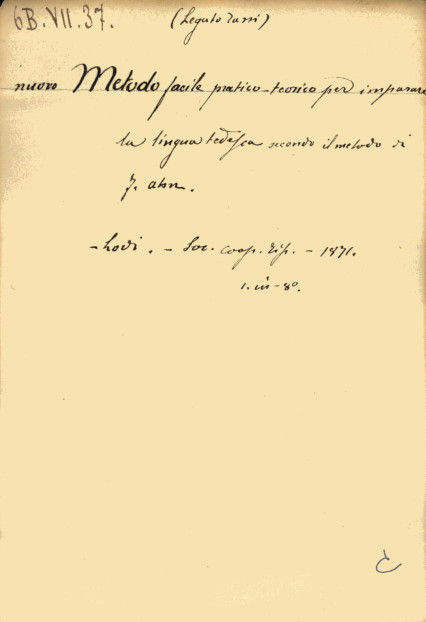 6B.VII.37. (Legato Tassi)
nuovo Metodo facile pratico-teorico per imparare
la lingua tedesca secondo il metodo di
F. ahn.
- Lodi. - Soc. coop. Tip. - 1871.
1. in-8º.